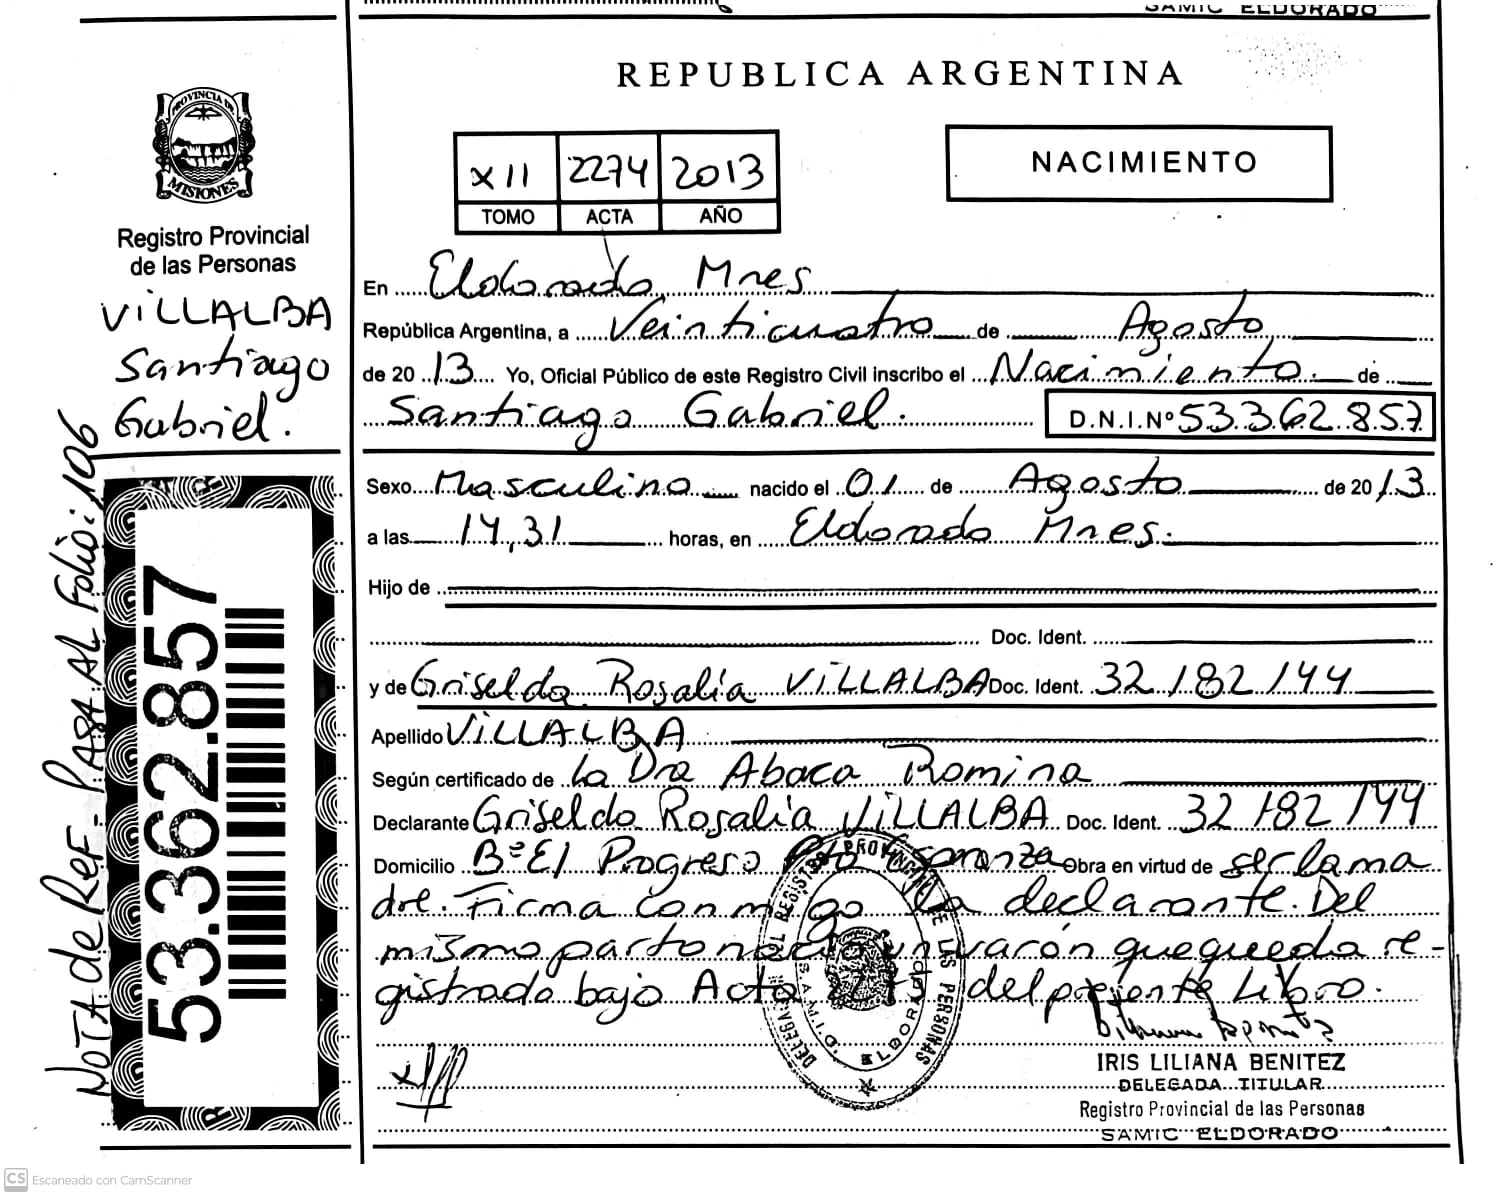 SAMIC ELDORADO
REPUBLICA ARGENTINA
PROVINCIA DE
MISIONES
Registro Provincial
de las Personas
VILLALBA
Santiago
Gabriel.
XII 2274 2013
TOMO ACTA AÑO
NACIMIENTO
En Eldorado Mnes
República Argentina, a Veinticuatro de Agosto
de 2013 Yo, Oficial Público de este Registro Civil inscribo el Nacimiento de
Santiago Gabriel. D.N.I.Nº 53.362.857
Sexo Masculino nacido el 01 de Agosto de 2013
a las 14,31 horas, en Eldorado Mnes.
Hijo de
Doc. Ident.
y de Griselda Rosalía VILLALBA Doc. Ident. 32/182/144
Apellido VILLALBA
Según certificado de la Dra Abaca Romina
Declarante Griselda Rosalía VILLALBA Doc. Ident. 32/182/144
Domicilio Bº El Progreso Pto Esperanza Obra en virtud de ser la ma
dre. Firma conmigo la declarante. Del
mismo parto nació un varón que queda re-
gistrado bajo Acta del presente Libro.
IRIS LILIANA BENITEZ
DELEGADA TITULAR
Registro Provincial de las Personas
SAMIC ELDORADO
DELEGA DEL REGISTRO PROVINCIAL DE LAS PERSONAS
ELDORADO
NOTA de REF. PASA AL Folio: 106
53.362.857
CS Escaneado con CamScanner